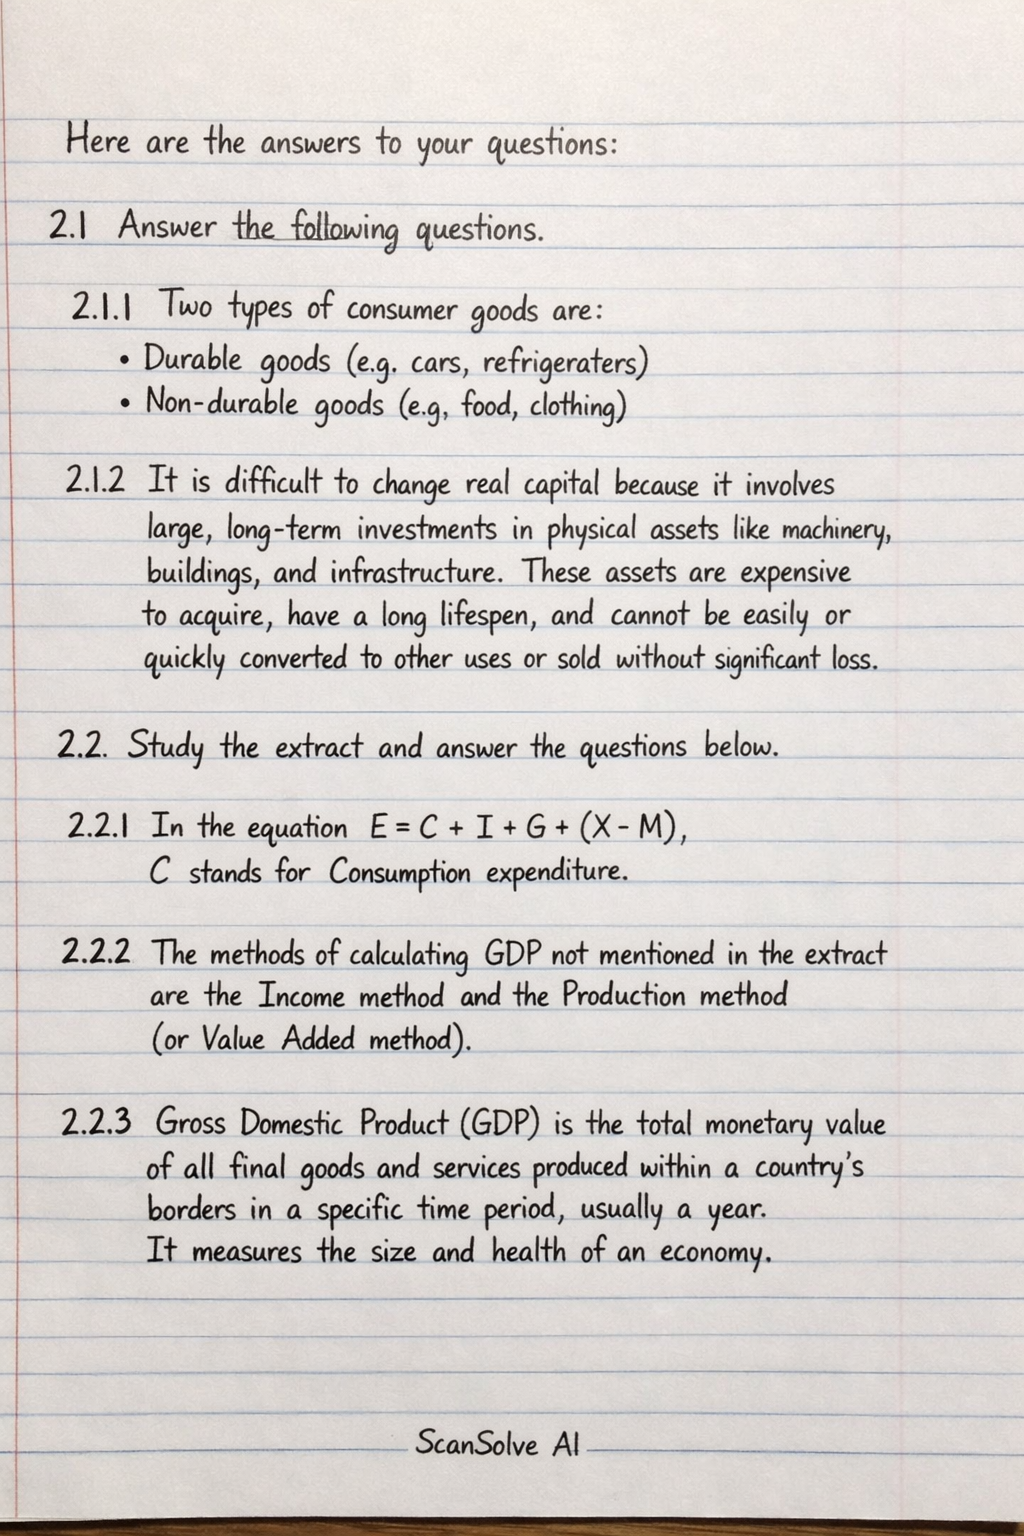 Here are the answers to your questions:
2.1 Answer the following questions.
2.1.1 Two types of consumer goods are:
• Durable goods (e.g. cars, refrigeraters)
• Non-durable goods (e.g, food, clothing)
2.1.2 It is difficult to change real capital because it involves
large, long-term investments in physical assets like machinery,
buildings, and infrastructure. These assets are expensive
to acquire, have a long lifespen, and cannot be easily or
quickly converted to other uses or sold without significant loss.
2.2. Study the extract and answer the questions below.
2.2.1 In the equation E = C + I + G + (X - M),
C stands for Consumption expenditure.
2.2.2 The methods of calculating GDP not mentioned in the extract
are the Income method and the Production method
(or Value Added method).
2.2.3 Gross Domestic Product (GDP) is the total monetary value
of all final goods and services produced within a country's
borders in a specific time period, usually a year.
It measures the size and health of an economy.
ScanSolve AI